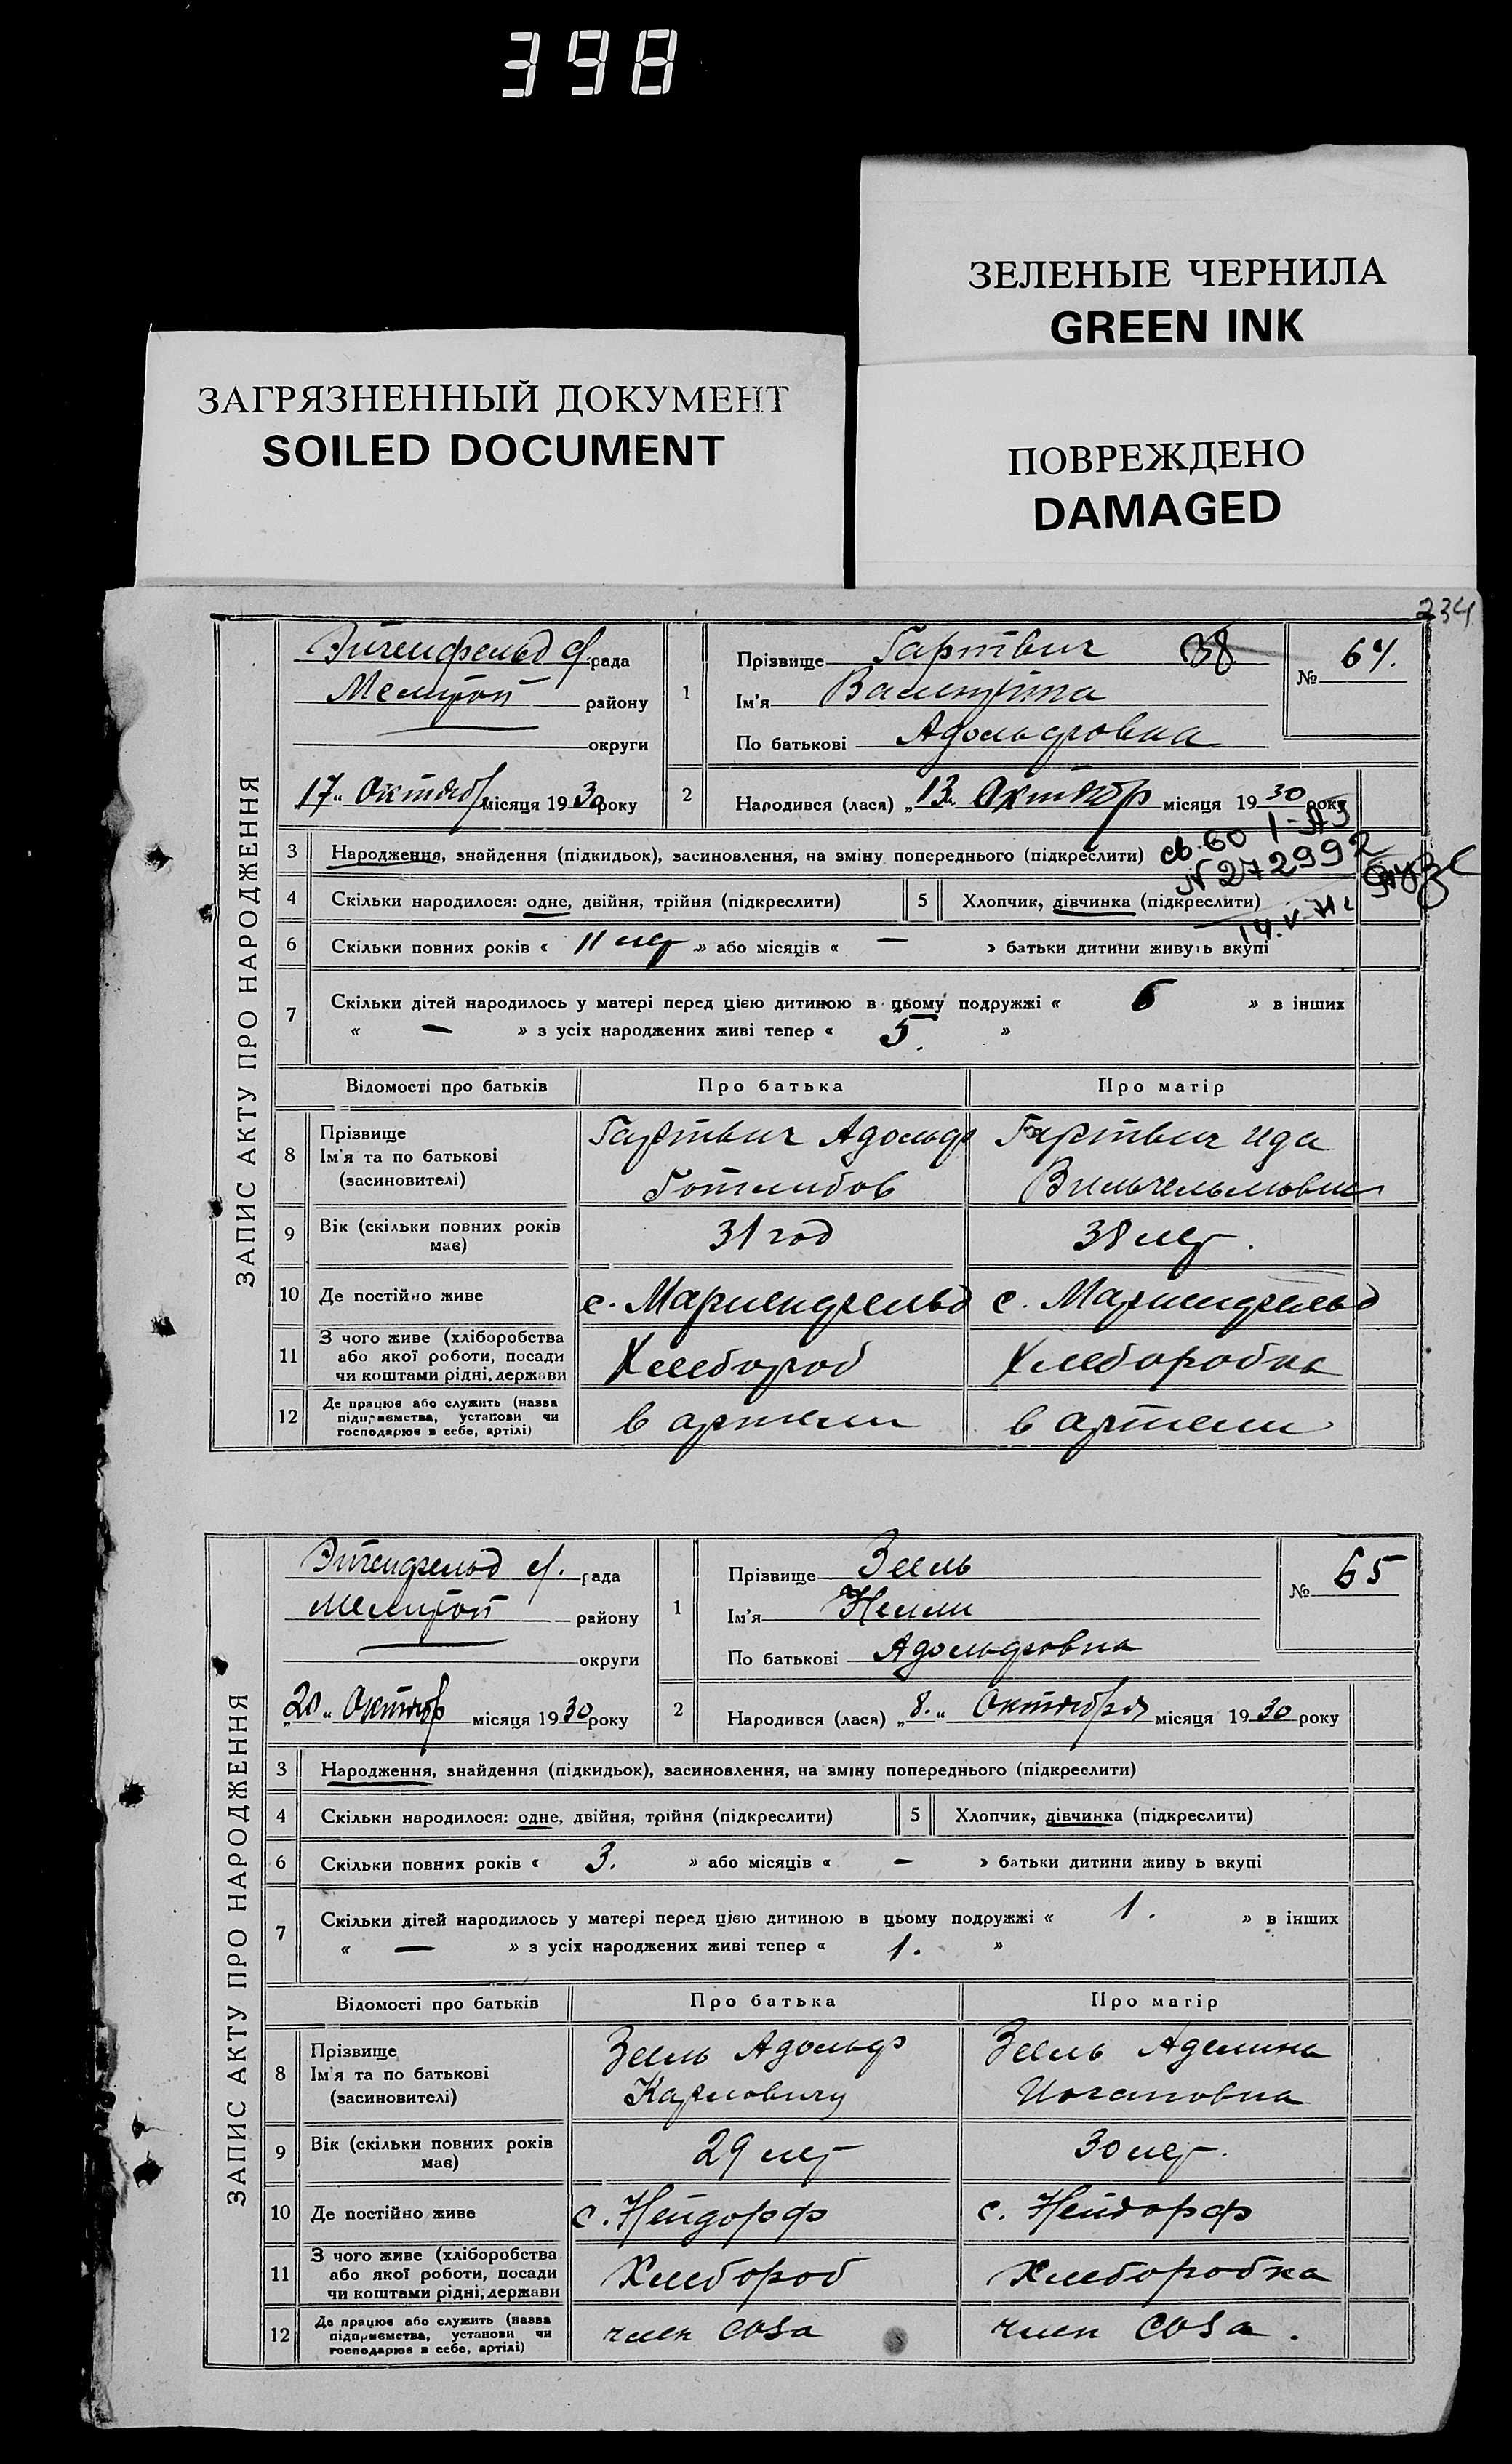 398
ЗЕЛЕНЫЕ ЧЕРНИЛА
GREEN INK
ЗАГРЯЗНЕННЫЙ ДОКУМЕНТ
SOILED DOCUMENT
ПОВРЕЖДЕНО
DAMAGED
234
ЗАПИС АКТУ ПРО НАРОДЖЕННЯ
Эйгенфельд с/. рада
Мелитоп району
округи
17 „ Октябр місяця 1930 року
1 Прізвище Гартвиг 38 № 64.
Ім'я Валентина
По батькові Адольфовна
2 Народився (лася) „13„ Октябр місяця 1930 року
3 Народження, знайдення (підкидьок), засиновлення, на зміну попереднього (підкреслити)
св. 60 I-АЗ
N 272992
14.V-71г
4 Скільки народилося: одне, двійня, трійня (підкреслити) 5 Хлопчик, дівчинка (підкреслити)
6 Скільки повних років « 11 лет » або місяців « — » батьки дитини живуть вкупі
7 Скільки дітей народилось у матері перед цією дитиною в цьому подружжі « 6 » в інших
« — » з усіх народжених живі тепер « 5. »
Відомості про батьків Про батька Про матір
8 Прізвище Ім'я та по батькові (засиновителі) Гартвиг Адольф Готлибов Гартвиг Ида Вильгельмовна
9 Вік (скільки повних років має) 31 год 38 лет.
10 Де постійно живе с. Мариенфельд с. Мариенфельд
11 З чого живе (хліборобства або якої роботи, посади чи коштами рідні, держави Хлебороб Хлеборобка
12 Де працює або служить (назва підприємства, установи чи господарює в себе, артілі) в артели в артели
ЗАПИС АКТУ ПРО НАРОДЖЕННЯ
Эйгенфельд с/. рада
Мелитоп району
округи
„20„ Октябр місяця 1930 року
1 Прізвище Зеель № 65
Ім'я Нелли
По батькові Адольфовна
2 Народився (лася) „8.„ Октября місяця 1930 року
3 Народження, знайдення (підкидьок), засиновлення, на зміну попереднього (підкреслити)
4 Скільки народилося: одне, двійня, трійня (підкреслити) 5 Хлопчик, дівчинка (підкреслити)
6 Скільки повних років « 3. » або місяців « — » батьки дитини живу ь вкупі
7 Скільки дітей народилось у матері перед цією дитиною в цьому подружжі « 1. » в інших
« — » з усіх народжених живі тепер « 1. »
Відомості про батьків Про батька Про матір
8 Прізвище Ім'я та по батькові (засиновителі) Зеель Адольф Карлович Зеель Аделина Иогановна
9 Вік (скільки повних років має) 29 лет 30 лет.
10 Де постійно живе с. Нейдорф с. Нейдорф
11 З чого живе (хліборобства або якої роботи, посади чи коштами рідні, держави Хлебороб Хлеборобка
12 Де працює або служить (назва підприємства, установи чи господарює в себе, артілі) член соза член соза.